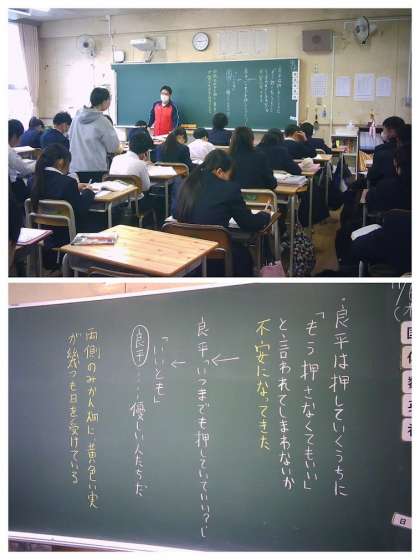 ・良平は押していくうちに
「もう押さなくてもいい」
と言われてしまわないか
不安になってきた
良平「いつまでも押していていい?」
↓
「いいとも」
良平……優しい人たちだ
両側のみかん畑に、黄色い実
が幾つも日を受けている
国
数
英
社
日